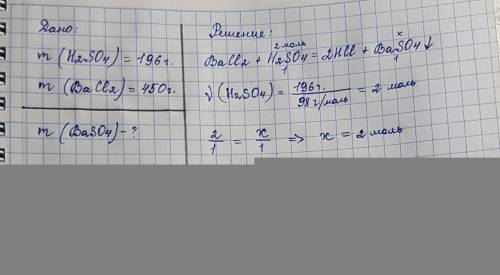 Дано:
m (H2SO4) = 196 г.
m (BaCl2) = 450 г.
m (BaSO4) - ?
Решение:
2 моль x
BaCl2 + H2SO4 = 2HCl + BaSO4↓
1 1
ν (H2SO4) = 196 г. / 98 г/моль = 2 моль
2/1 = x/1 => x = 2 моль